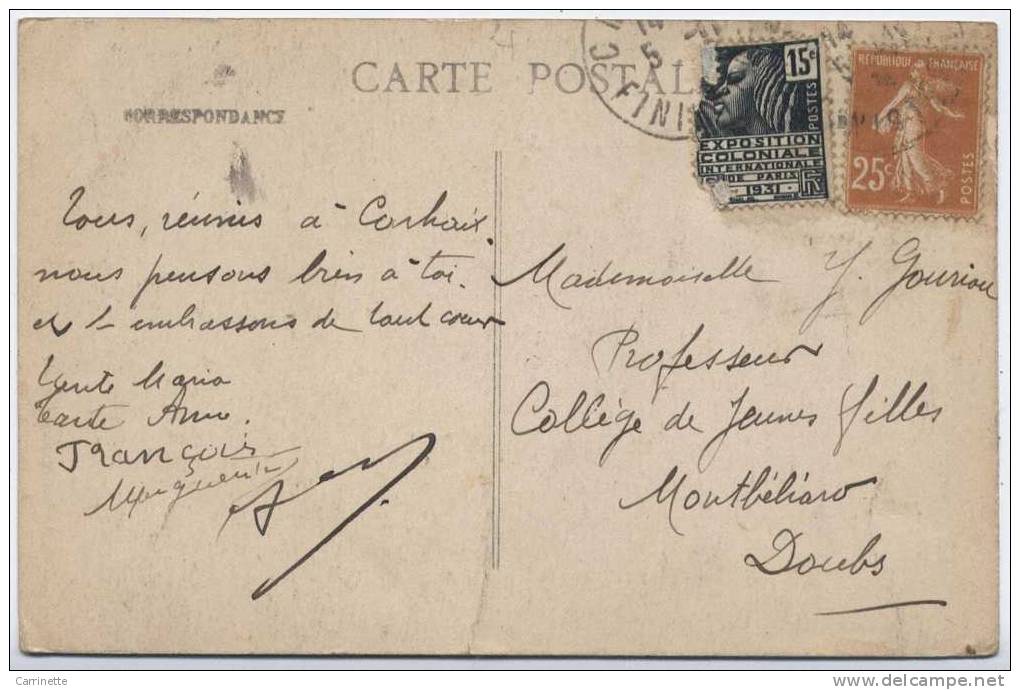 CARTE POSTALE
CORRESPONDANCE
Tous, réunis à Carhaix,
nous pensons bien à toi.
et t'embrassons de tout cœur
Tante Maria
Tante Anne.
François
Marguerite
Mademoiselle Y. Gouriou
Professeur
Collège de Jeunes filles
Montbéliard
Doubs
15c
POSTES
EXPOSITION
COLONIALE
INTERNATIONALE
DE PARIS
1931
RF
REPUBLIQUE FRANÇAISE
25c
POSTES
14
5
FINIST
Carrinette
delcampe.net